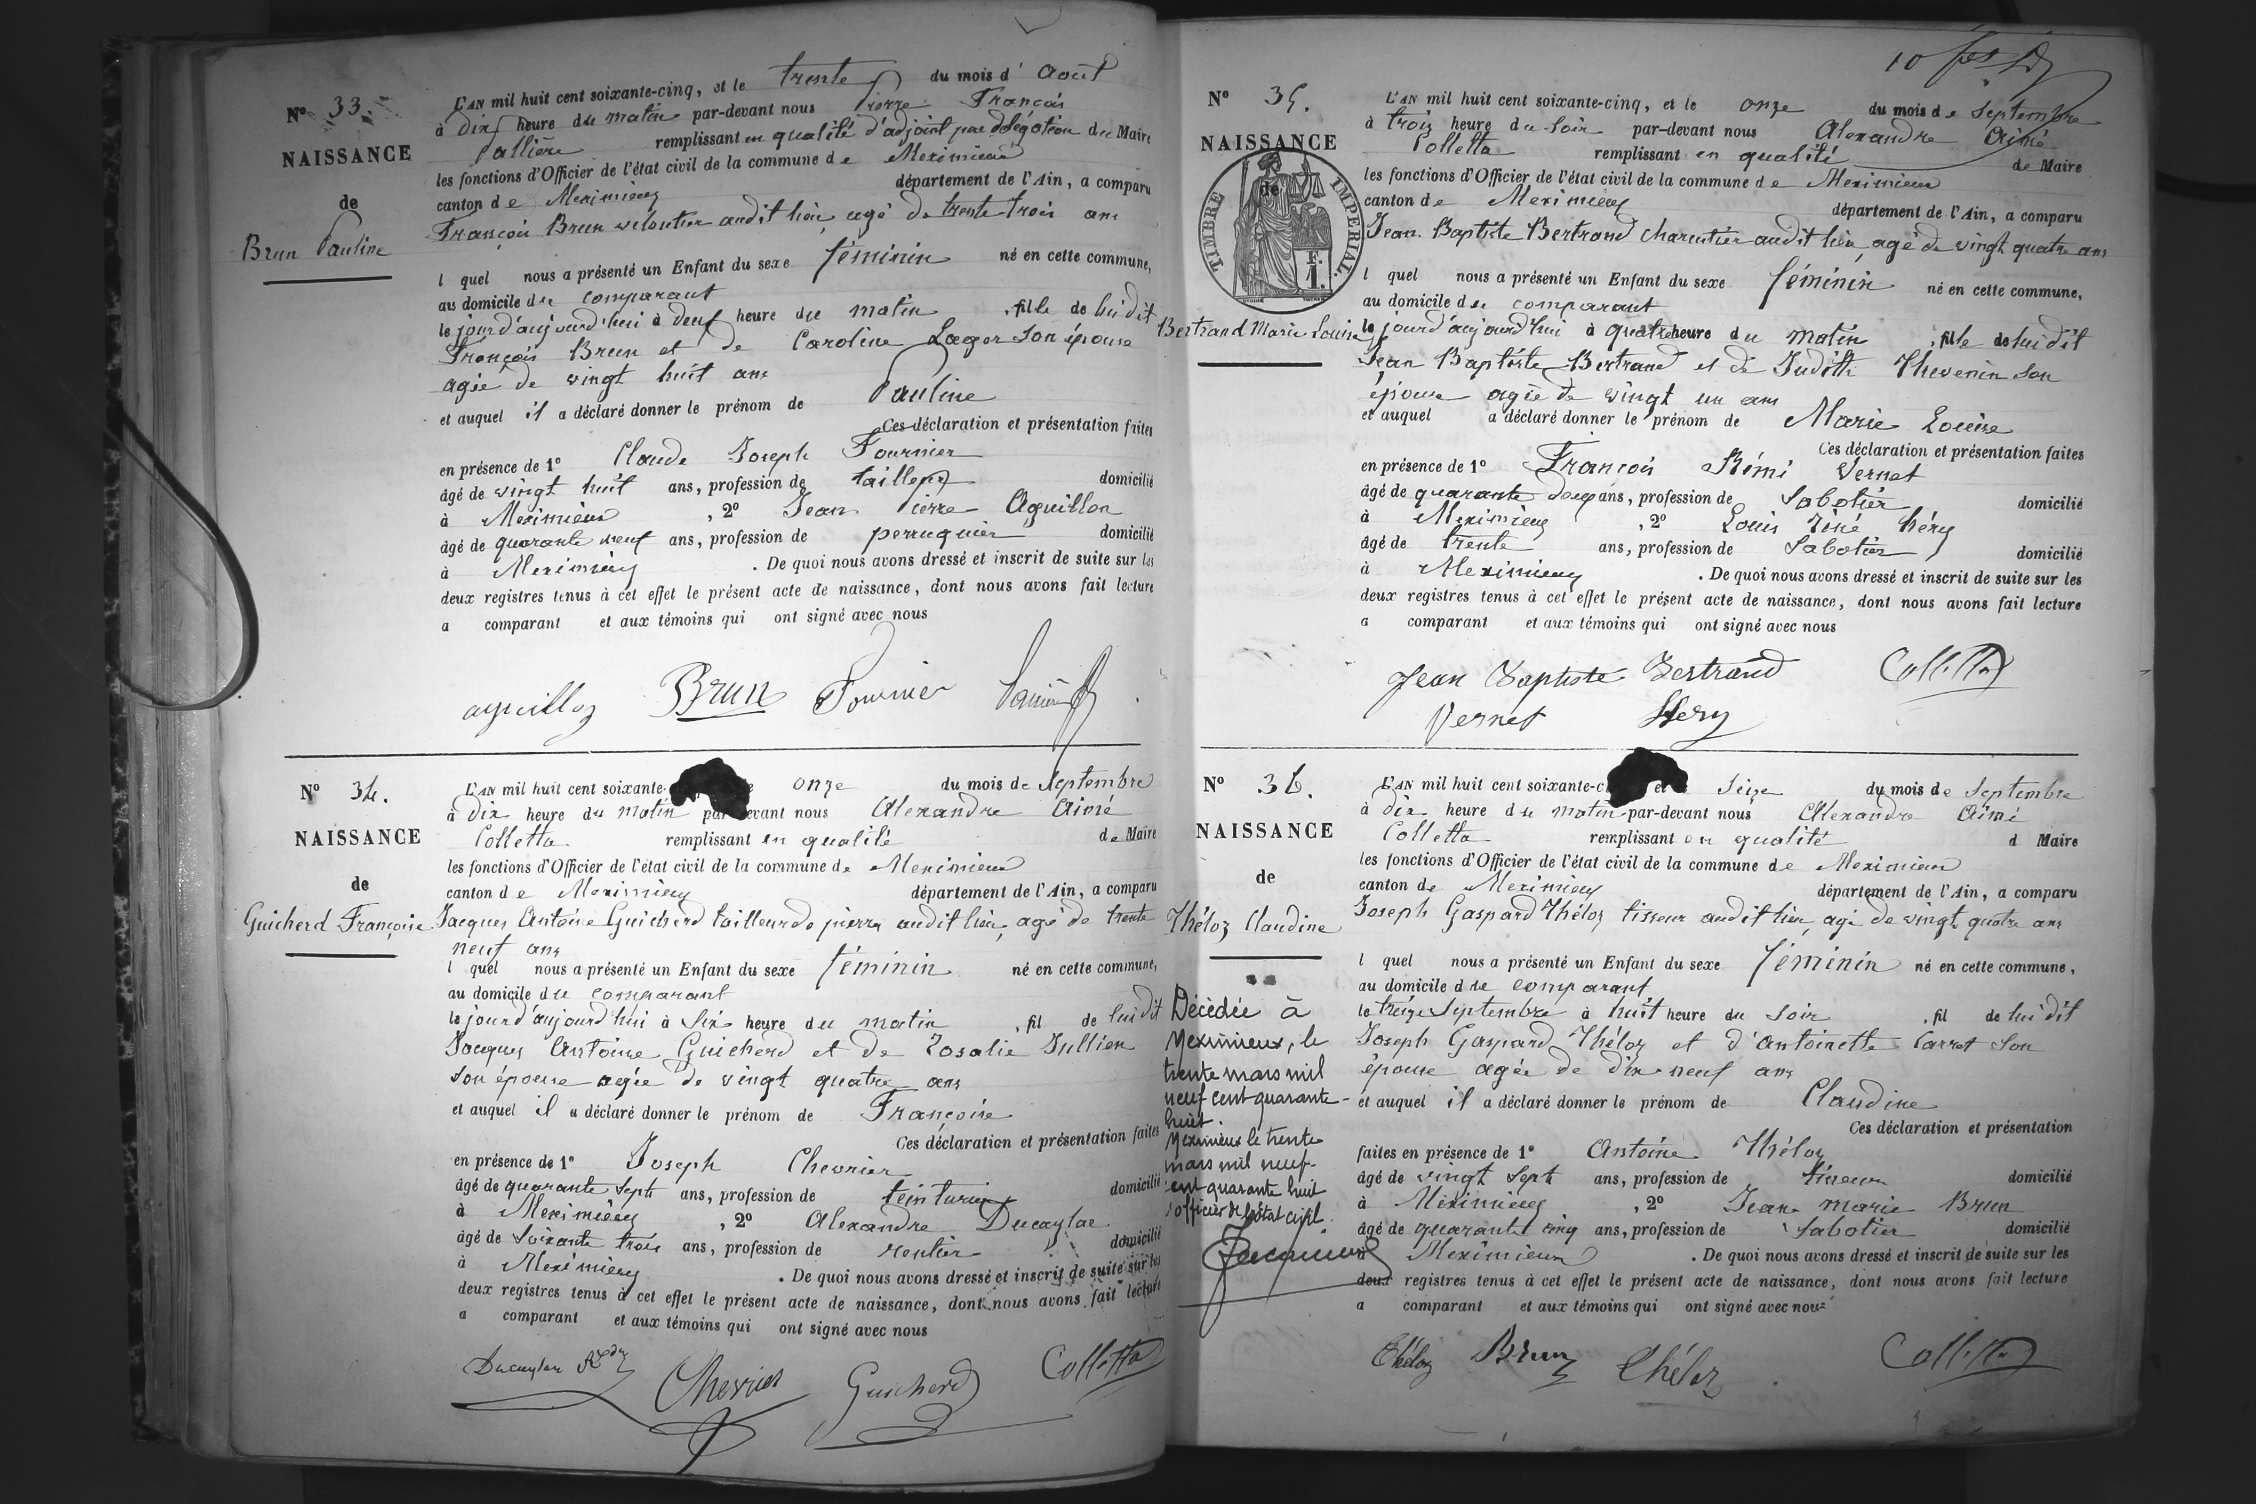 N° 33.
NAISSANCE
de
Brun Pauline
L'AN mil huit cent soixante-cinq, et le trente du mois d' Août
à dix heure du matin par-devant nous Pierre François
Pallière remplissant en qualité d'adjoint par délégation du Maire
les fonctions d'Officier de l'état civil de la commune de Meximieux
canton de Meximieux département de l'Ain, a comparu
François Brun veloutier audit lieu, agé de trente trois ans
l quel nous a présenté un Enfant du sexe féminin né en cette commune,
au domicile du comparant
le jour d'aujourd'hui à deux heure du matin, fille de lui dit
François Brun et de Caroline Lager son épouse
agée de vingt huit ans
et auquel il a déclaré donner le prénom de Pauline
Ces déclaration et présentation faites
en présence de 1° Claude Joseph Fournier
âgé de vingt huit ans, profession de tailleur domicilié
à Meximieux, 2° Jean Pierre Aguillon
âgé de quarante neuf ans, profession de perruquier domicilié
à Meximieux. De quoi nous avons dressé et inscrit de suite sur les
deux registres tenus à cet effet le présent acte de naissance, dont nous avons fait lecture
a comparant et aux témoins qui ont signé avec nous
Brun Fournier
N° 34.
NAISSANCE
de
Guicherd Françoise
L'AN mil huit cent soixante- onze du mois de Septembre
à dix heure du matin par-devant nous Alexandre Aimé
Colletta remplissant en qualité de Maire
les fonctions d'Officier de l'état civil de la commune de Meximieux
canton de Meximieux département de l'Ain, a comparu
Jacques Antoine Guicherd tailleur de pierre audit lieu, agé de trente
neuf ans
l quel nous a présenté un Enfant du sexe féminin né en cette commune,
au domicile du comparant
le jour d'aujourd'hui à six heure du matin, fil de lui dit
Jacques Antoine Guicherd et de Rosalie Jullien
son épouse agée de vingt quatre ans
et auquel il a déclaré donner le prénom de Françoise
Ces déclaration et présentation faites
en présence de 1° Joseph Chevrier
âgé de quarante sept ans, profession de teinturier domicilié
à Meximieux, 2° Alexandre Ducaylar
âgé de soixante trois ans, profession de rentier domicilié
à Meximieux. De quoi nous avons dressé et inscrit de suite sur les
deux registres tenus à cet effet le présent acte de naissance, dont nous avons fait lecture
a comparant et aux témoins qui ont signé avec nous
Ducaylar Chevrier Guicherd Colletta
10
N° 35.
NAISSANCE
de
TIMBRE IMPERIAL.
F.
1.
Bertrand Marie Louise
L'AN mil huit cent soixante-cinq, et le onze du mois de Septembre
à trois heure du soir par-devant nous Alexandre Aimé
Colletta remplissant en qualité de Maire
les fonctions d'Officier de l'état civil de la commune de Meximieux
canton de Meximieux département de l'Ain, a comparu
Jean Baptiste Bertrand charentier audit lieu, agé de vingt quatre ans
l quel nous a présenté un Enfant du sexe féminin né en cette commune,
au domicile du comparant
le jour d'aujourd'hui à quatre heure du matin, fille de lui dit
Jean Baptiste Bertrand et de Judith Thevenin son
épouse agée de vingt un ans
et auquel a déclaré donner le prénom de Marie Louise
Ces déclaration et présentation faites
en présence de 1° François Rémi Vernet
âgé de quarante deux ans, profession de Sabotier domicilié
à Meximieux, 2° Louis Héry
âgé de trente ans, profession de Sabotier domicilié
à Meximieux. De quoi nous avons dressé et inscrit de suite sur les
deux registres tenus à cet effet le présent acte de naissance, dont nous avons fait lecture
a comparant et aux témoins qui ont signé avec nous
Jean Baptiste Bertrand Colletta
Vernet Hery
N° 36.
NAISSANCE
de
Théloz Claudine
Décédée à
Meximieux, le
trente mars mil
neuf cent quarante-
huit.
Meximieux le trente
mars mil neuf-
cent quarante huit
l'officier de l'état civil.
L'AN mil huit cent soixante-c et seize du mois de Septembre
à dix heure du matin par-devant nous Alexandre Aimé
Colletta remplissant en qualité d Maire
les fonctions d'Officier de l'état civil de la commune de Meximieux
canton de Meximieux département de l'Ain, a comparu
Joseph Gaspard Théloz tisseur audit lieu, agé de vingt quatre ans
l quel nous a présenté un Enfant du sexe féminin né en cette commune,
au domicile du comparant
le treize Septembre à huit heure du soir, fil de lui dit
Joseph Gaspard Théloz et d'Antoinette Carret son
épouse agée de dix neuf ans
et auquel il a déclaré donner le prénom de Claudine
Ces déclaration et présentation
faites en présence de 1° Antoine Théloz
âgé de vingt sept ans, profession de tisseur domicilié
à Meximieux, 2° Jean Marie Brun
âgé de quarante cinq ans, profession de Sabotier domicilié
à Meximieux. De quoi nous avons dressé et inscrit de suite sur les
deux registres tenus à cet effet le présent acte de naissance, dont nous avons fait lecture
a comparant et aux témoins qui ont signé avec nous
Théloz Brun Théloz Colletta